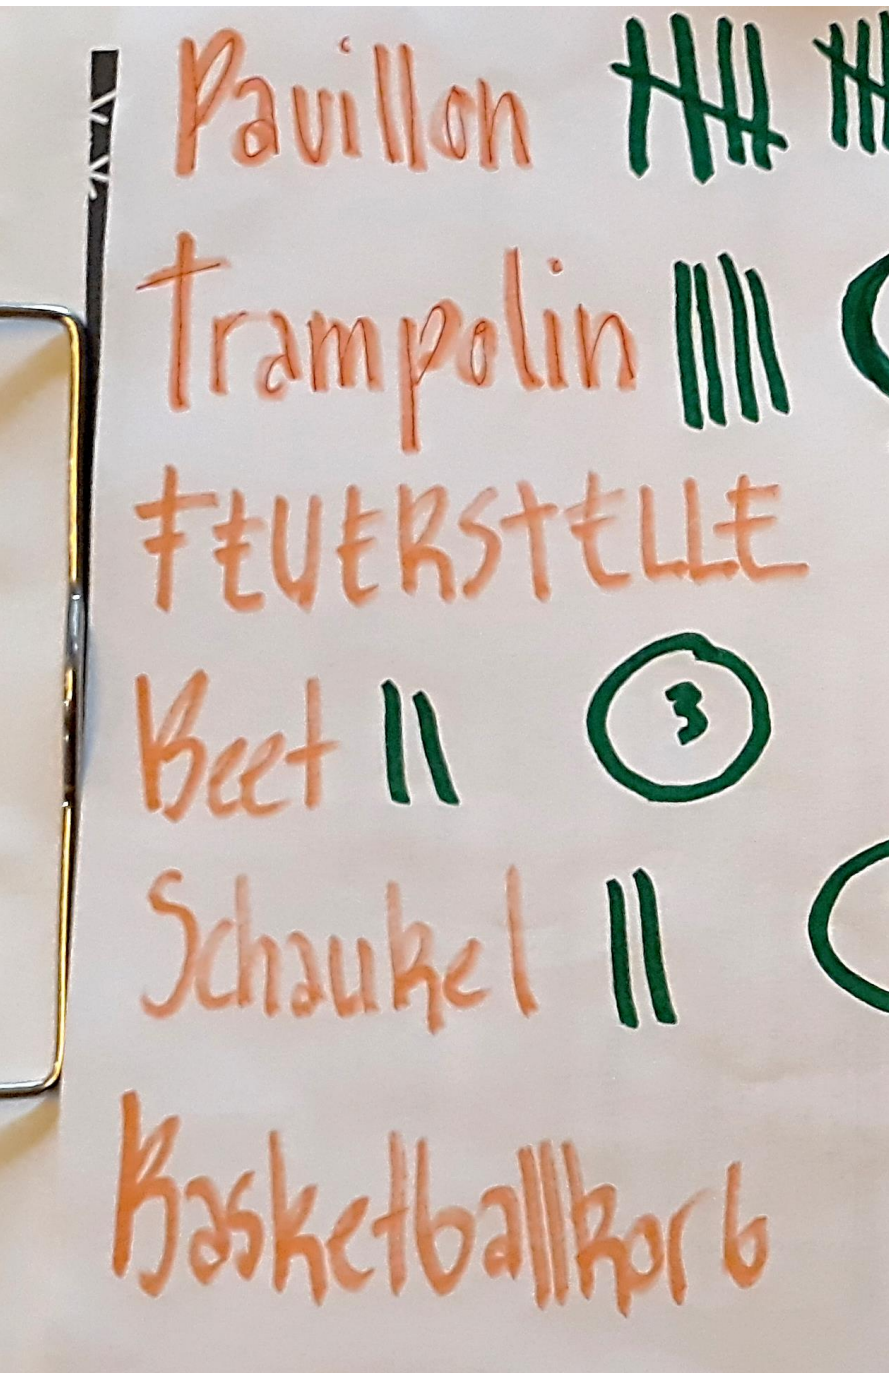 Pavillon
Trampolin
FEUERSTELLE
Beet 3
Schaukel
Basketballkorb